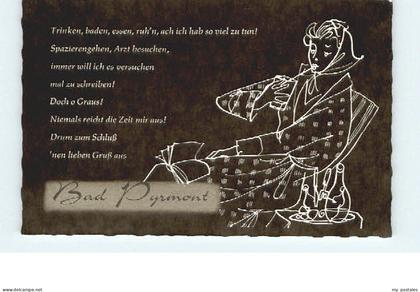 Trinken, baden, essen, ruh'n, ach ich hab so viel zu tun!
Spazierengehen, Arzt besuchen,
immer will ich es versuchen
mal zu schreiben!
Doch o Graus!
Niemals reicht die Zeit mir aus!
Drum zum Schluß
'nen lieben Gruß aus
Bad Pyrmont
www.delcampe.net
my postales